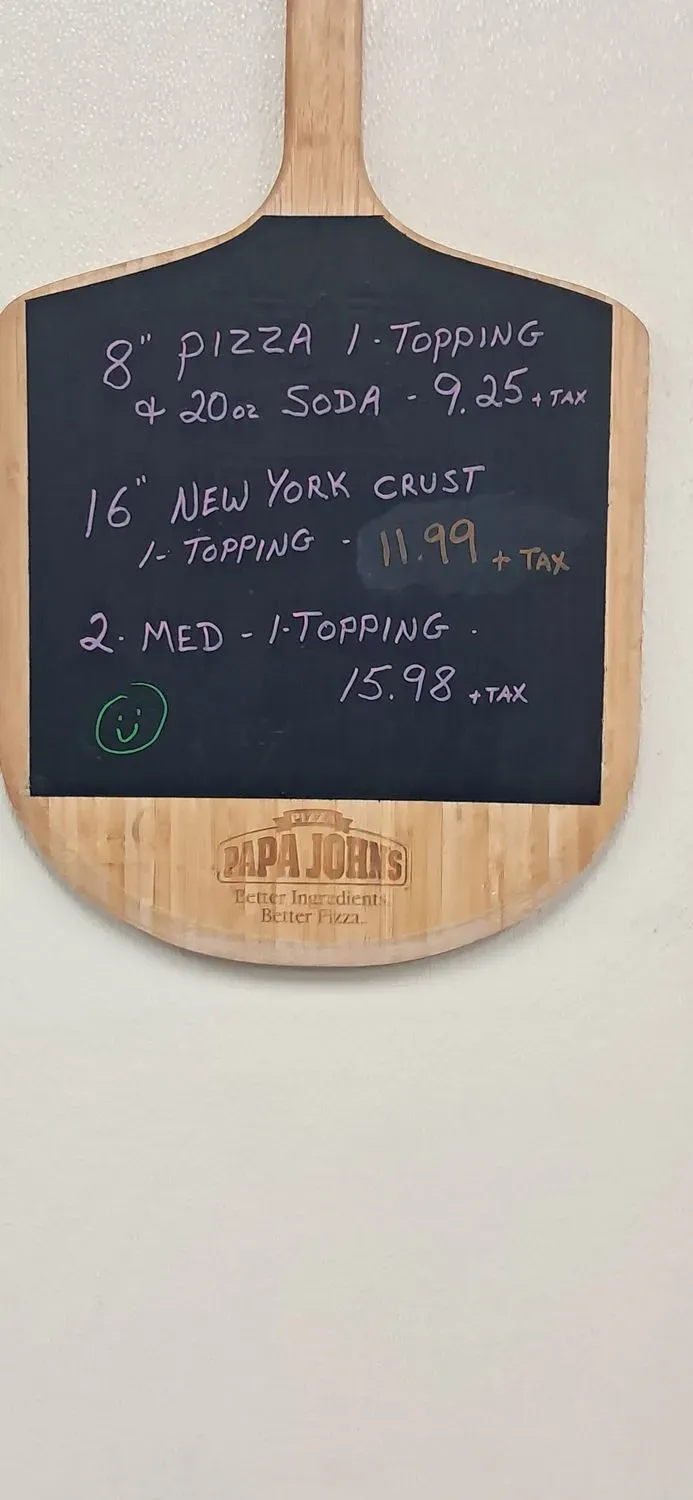 8" PIZZA 1-TOPPING
& 20oz SODA - 9.25 + TAX
16" NEW YORK CRUST
1- TOPPING - 11.99 + TAX
2. MED - 1-TOPPING -
15.98 + TAX
PIZZA
PAPA JOHN'S
Better Ingredients.
Better Pizza.